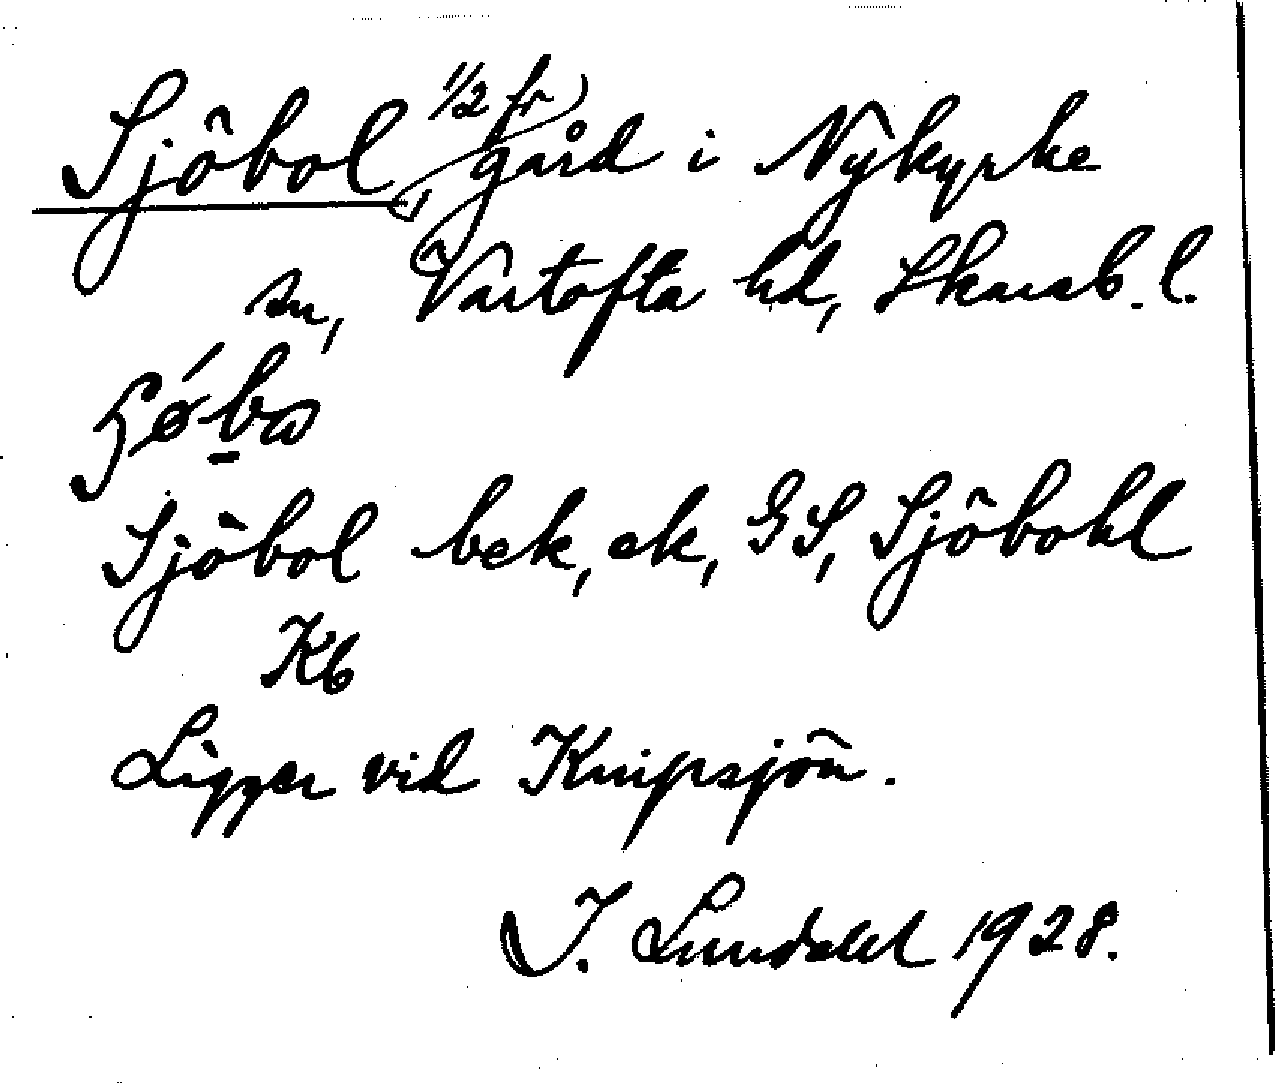 Sjöbol, 1/2 fr gård i Nykyrke
sn, Vartofta hd, Skarab. l.
Sjöbol bek, ek, GS, Sjöbohl
Kb
Ligger vid Knipsjön.
I. Lundahl 1928.